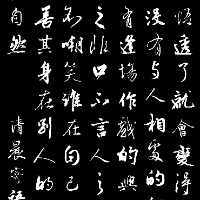 悟透了就會變得
没有与人相處的
有逢場作戲的興
之非口不言人之
不嘲笑谁在自己
善其身在别人的
自然 清晨寄語